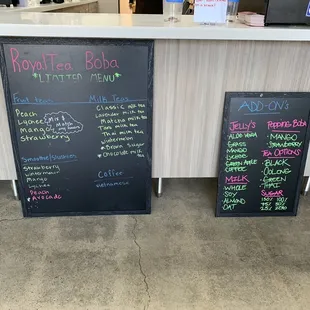 RoyalTea Boba
*LIMITED MENU*
Fruit teas
Peach
Lychee
Mango
Strawberry
Mix &
Match
Milk Teas
Classic milk tea
Lavender milk tea
Matcha milk tea
Taro milk tea
Thai milk tea
Watermelon
*Brown Sugar
*Chocolate milk
Smoothie/Slushies
Strawberry
Watermelon
Mango
Lychee
Peach
Avocado
Coffee
Vietnamese
ADD-ON's
JELLY'S
ALOE VERA
GRASS
MANGO
LYCHEE
GREEN APPLE
COFFEE
MILK
WHOLE
SOY
ALMOND
OAT
POPPING BOBA
MANGO
STRAWBERRY
TEA OPTIONS
BLACK
OOLONG
GREEN
THAI
SUGAR